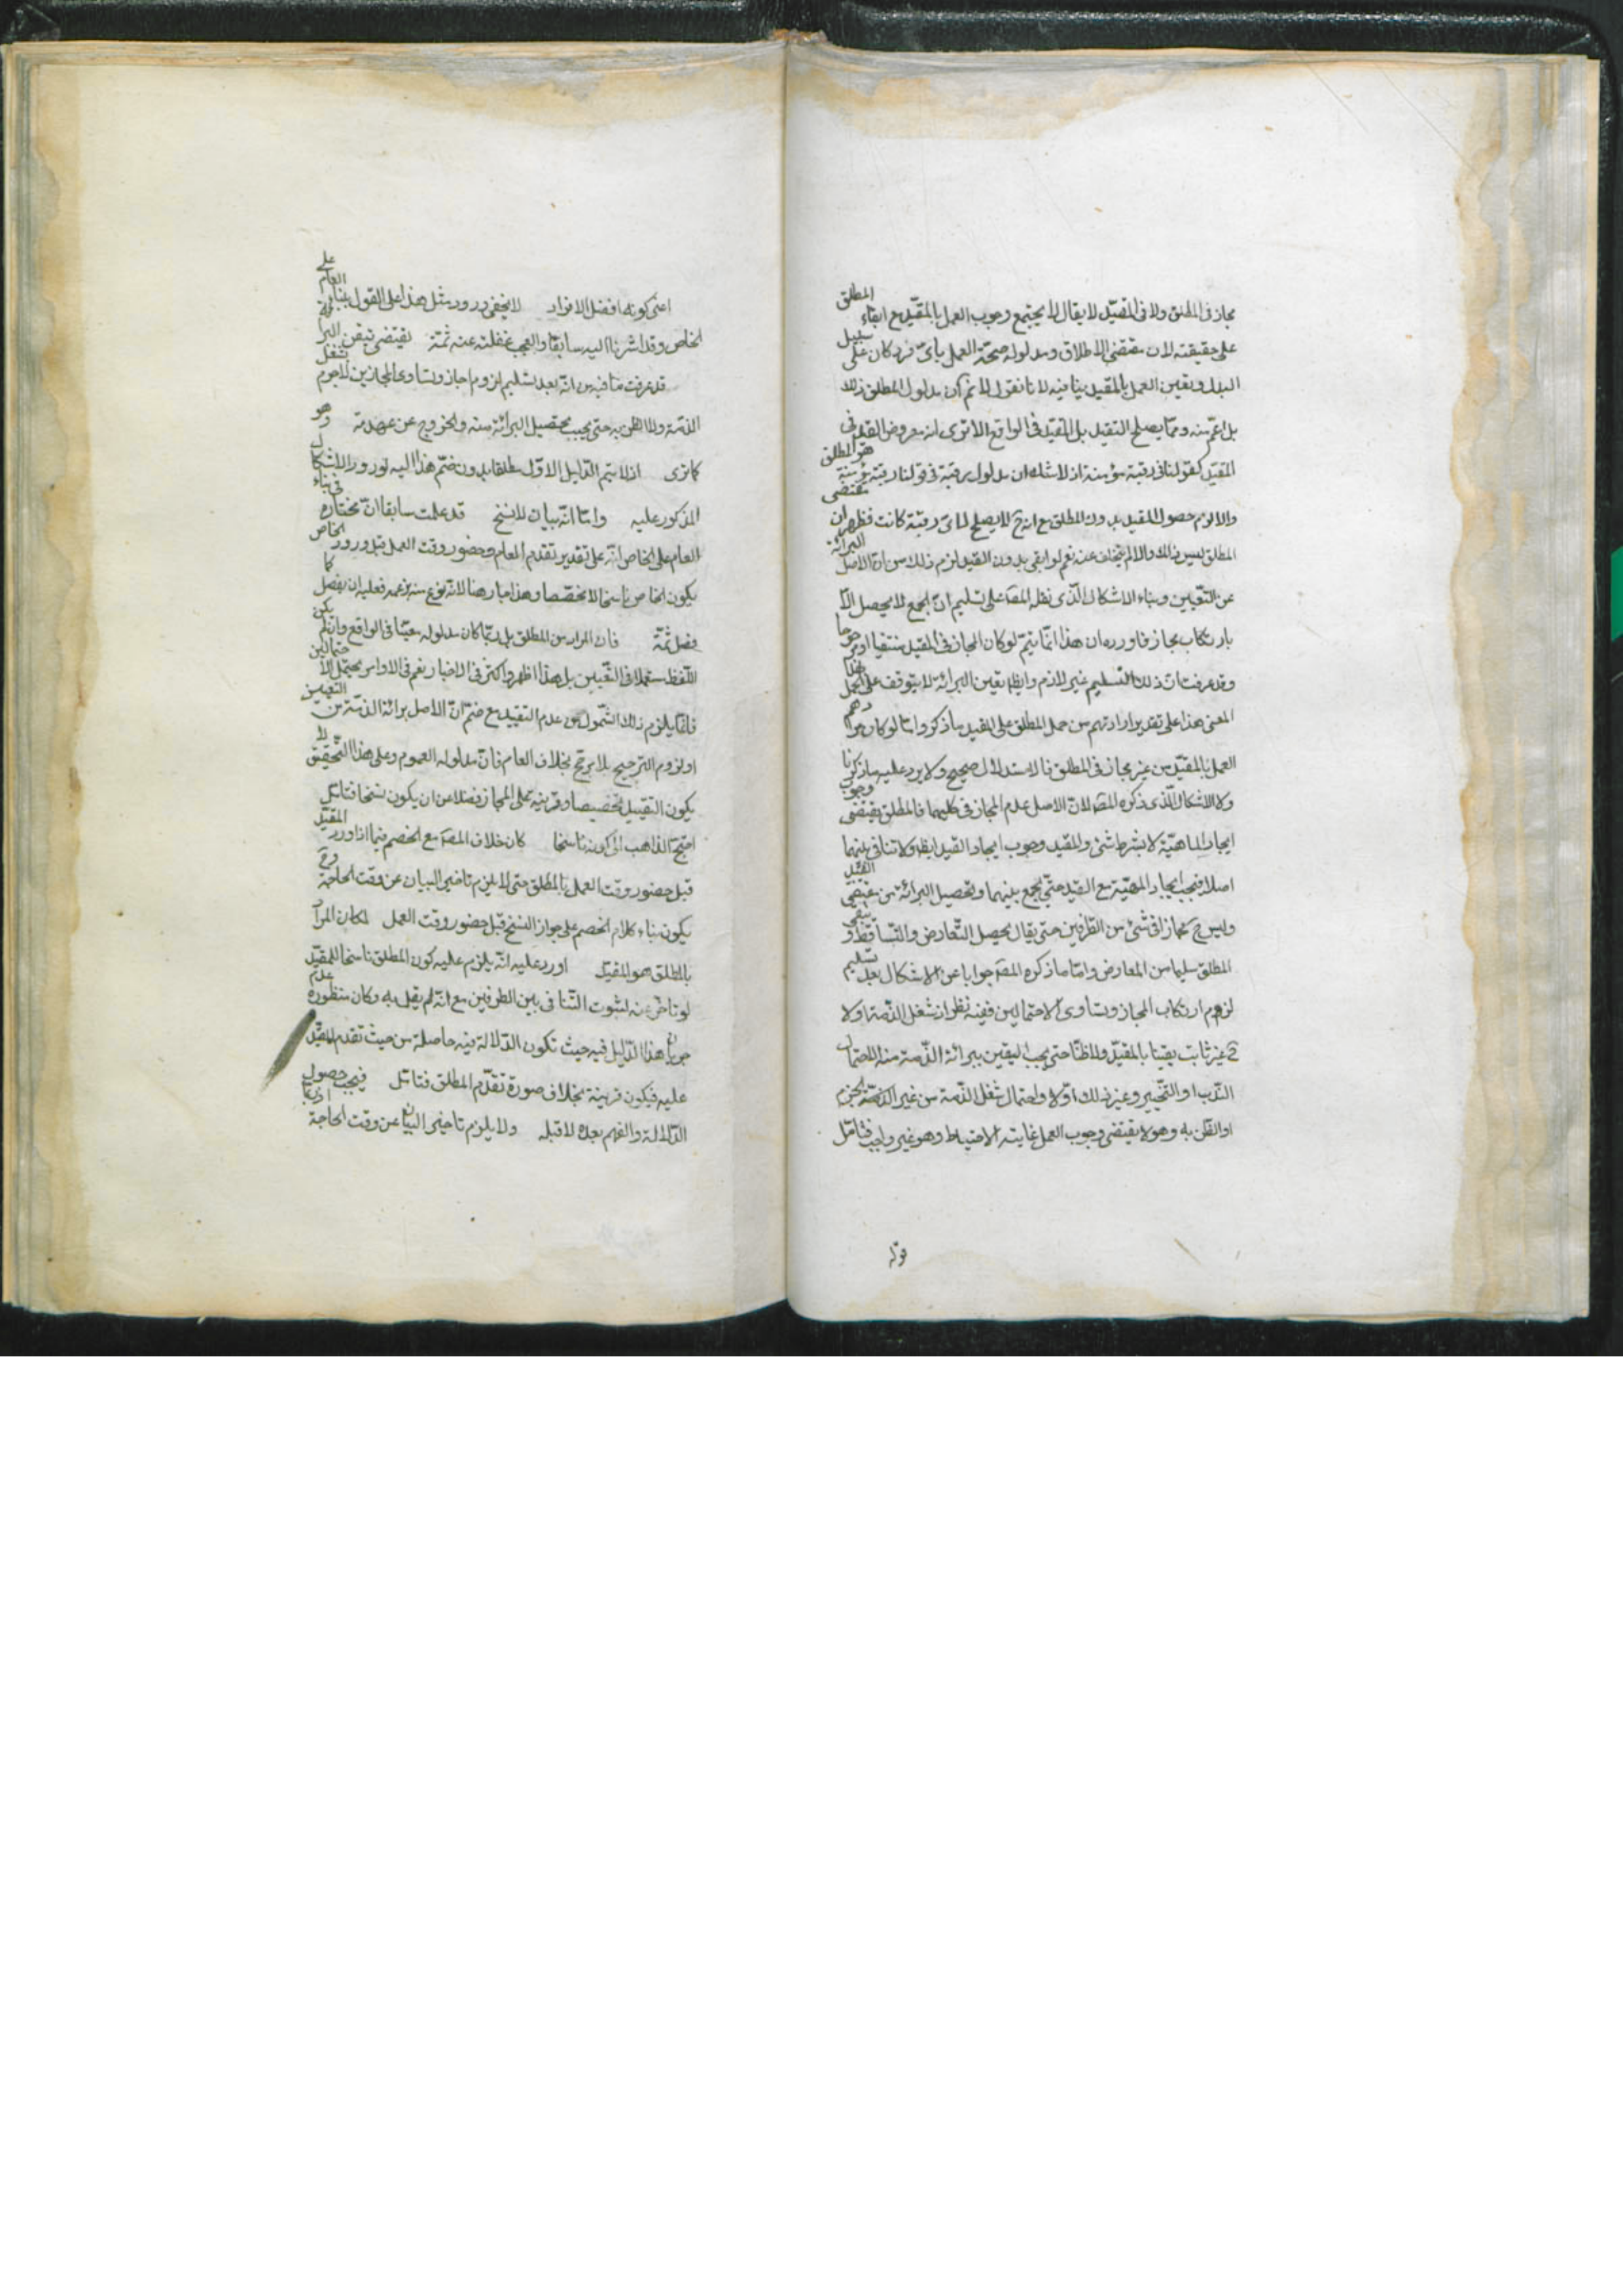 مجاز فى المطلق ولا فى المقيّد لا يقال لا يجتمع وجوب العمل بالمقيّد مع ابقاء المطلق
على حقيقته لان مقتضى الاطلاق ومدلوله صحّة العمل باىّ فرد كان على سبيل
البدل وتعيين العمل بالمقيد ينافيه لانا نقول لا نم كون مدلول المطلق ذلك
بل اعمّ منه وممّا يصلح للتقيد بل المقيّد فى الواقع الا ترى انه معروض القيد فى
المقيّد كقولنا فى رقبة مؤمنة اذ لا شك ان مدلول رقبة فى قولنا رقبة مؤمنة هو المطلق
والا لزم حصول المقيد بدون المطلق مع انه لا يصلح لاىّ رقبة كانت فظهر ان مقتضى
المطلق ليس ذلك والا لم يتخلف عنه نعم لو ابقى بدون القيد لزم ذلك من ان الاصل البرائة
عن التعيين وبناء الاشكال الّذى نقله المصّ على تسليم انّ الجمع لا يحصل الّا
بارتكاب مجاز فاورد ان هذا انّما يتمّ لو كان المجاز فى المقيد منتفيا او مرجوحا
وقد عرفت ان ذلك التسليم غير لازم وايضا تعيين البرائة لا يتوقف على الحمل هذا
المعنى هذا على تقدير ارادتهم من حمل المطلق على المقيد ما ذكر واما لو كان مرادهم
العمل بالمقيّد من غير مجاز فى المطلق فالاستدلال صحيح ولا يرد عليه ما ذكرنا
ولا الاشكال الّذى ذكره المصّ لانّ الاصل عدم المجاز فى كليهما فالمطلق يقتضى وجوب
ايجاد الماهيّة لا بشرط شئ والمقيد وجوب ايجاد القيد ايضا ولا تنافى بينهما
اصلا فيجب ايجاد المهيّة مع القيد حتّى يجمع بينهما وتحصيل البرائة من مقتضى القيد
وليس ح مجاز فى شئ من الطّرفين حتى يقال يحصل التّعارض والتّساقط و يبقى
المطلق سليما من المعارض وامّا ما ذكره المصّ جوابا عن الاشكال بعد تسليم
لزوم ارتكاب المجاز وتساوى الاحتمالين ففيه نظر اذ شغل الذّمة اوّلا
غير ثابت يقينا بالمقيّد ولا ظنّا حتى يجب اليقين ببرائة الذّمة منه لاحتمال
النّدب او التّخيير وغير ذلك اوّلا واحتمال شغل الذّمة من غير الجزم
او الظّن به وهو لا يقتضى وجوب العمل غايته الاحتياط وهو غير واجب فتامّل
قوله
اعنى كونه افضل الافراد لا يخفى ورود مثل هذا على القول ببناء العام على
الخاص وقد اشرنا اليه سابقا والعجب غفلته عنه ثمّة يقتضى تيقن البرائة
قد عرفت ما فيه من انّه بعد تسليم لزوم المجاز وتساوى المجازين لا جزم بشغل
الذمّة ولا الظن به حتى يجب تحصيل البرائة منه والخروج عن عهدته وهو
كما ترى اذ لا يتم الدّليل الاوّل مطلقا بدون ضمّ هذا اليه لورود الاشكال
المذكور عليه وامّا انّه بيان لا نسخ قد علمت سابقا انّ مختاره فى بناء
العام على الخاص انّه على تقدير تقدم العام وحضور وقت العمل قبل ورود الخاص
يكون الخاص ناسخا لا مخصّصا وهذا جار هنا لانه نوع منه بزعمه فعليه ان يفصل كما
فصل ثمّة فان المراد من المطلق بل ربّما كان مدلوله معيّنا فى الواقع وان لم يكن
اللّفظ مستعملا فى التّعيين بل هذا اظهر واكثر فى الاخبار نعم فى الاوامر يحتمل الاحتمالين
فانّما يلزم ذلك الشّمول من عدم التقييد مع ضمّ انّ الاصل برائة الذمّة من التعيين
او لزوم التّرجيح بلا مرجّح بخلاف العام فانّ مدلوله العموم وعلى هذا التّحقيق لا
يكون التقييد تخصيصا وقرينة على المجاز فضلا عن ان يكون نسخا فتامّل
احتجّ الذاهب الى كونه ناسخا كان خلاف المصّ مع الخصم فيما اذا ورد المقيّد
قبل حضور وقت العمل بالمطلق حتى لا يلزم تاخير البيان عن وقت الحاجة وح
يكون بناء كلام الخصم على جواز النسخ قبل حضور وقت العمل لكان المراد
بالمطلق هو المقيّد اورد عليه انّه يلزم عليه كون المطلق ناسخا للمقيّد
لو تاخّر عنه لثبوت التّنافى بين الطرفين مع انّه لم يقل به وكان منظوره عدم
جريان هذا الدّليل فيه حيث تكون الدّلالة فيه حاصلة من حيث تقدم المقيّد
عليه فيكون قرينة بخلاف صورة تقدّم المطلق فتامّل فيجب حصول
الدّلالة والفهم بعده لا قبله ولا يلزم تاخير البيان عن وقت الحاجة